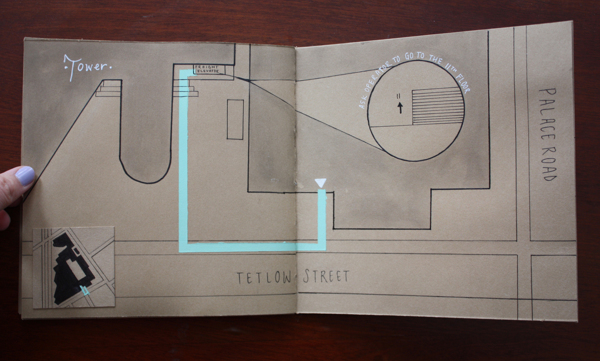 Tower
FREIGHT
ELEVATOR
ASK PERMADE TO GO TO THE 11TH FLOOR
11
PALACE ROAD
TETLOW STREET